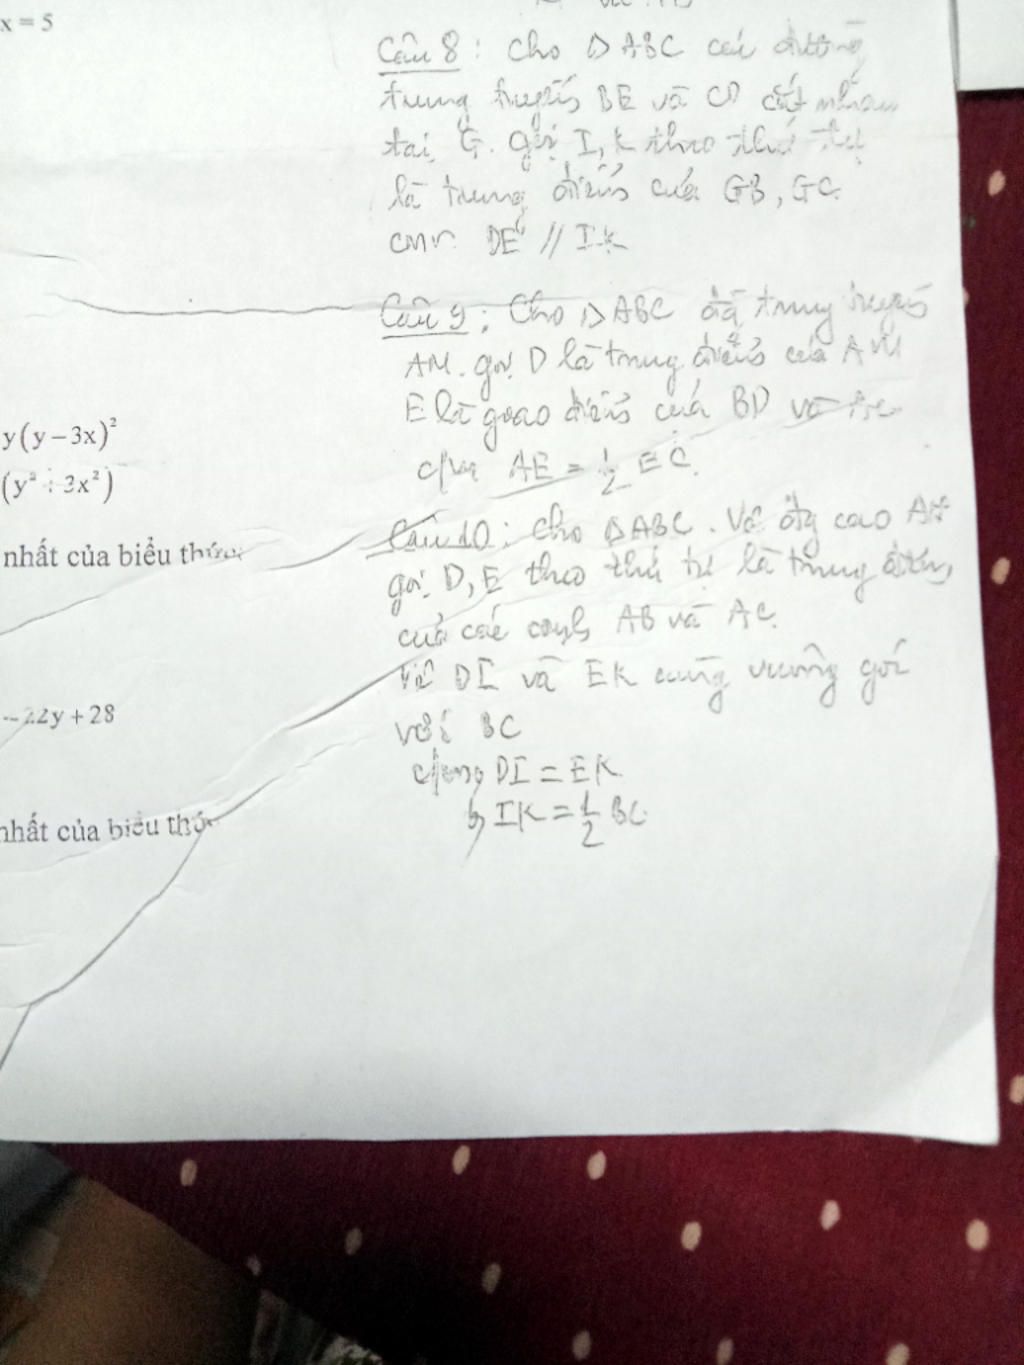 x = 5
y(y – 3x)²
(y² + 3x²)
nhất của biểu thức
–22y + 28
nhất của biểu thứ
Câu 8 : Cho Δ ABC các đường
trung tuyến BE và CD cắt nhau
tại G. gọi I, K theo thứ tự
là trung điểm của GB, GC.
cmr DE // IK
Câu 9 : Cho Δ ABC trung tuyến
AM. gọi D là trung điểm của AM
E là giao điểm của BD và
c/m AE = 1/2 EC.
Câu 10 : Cho Δ ABC. Vẽ cao AH
gọi D, E theo thứ tự là trung điểm
của các cạnh AB và AC.
Vẽ DI và EK cùng vuông góc
với BC
DI = EK
b, IK = 1/2 BC